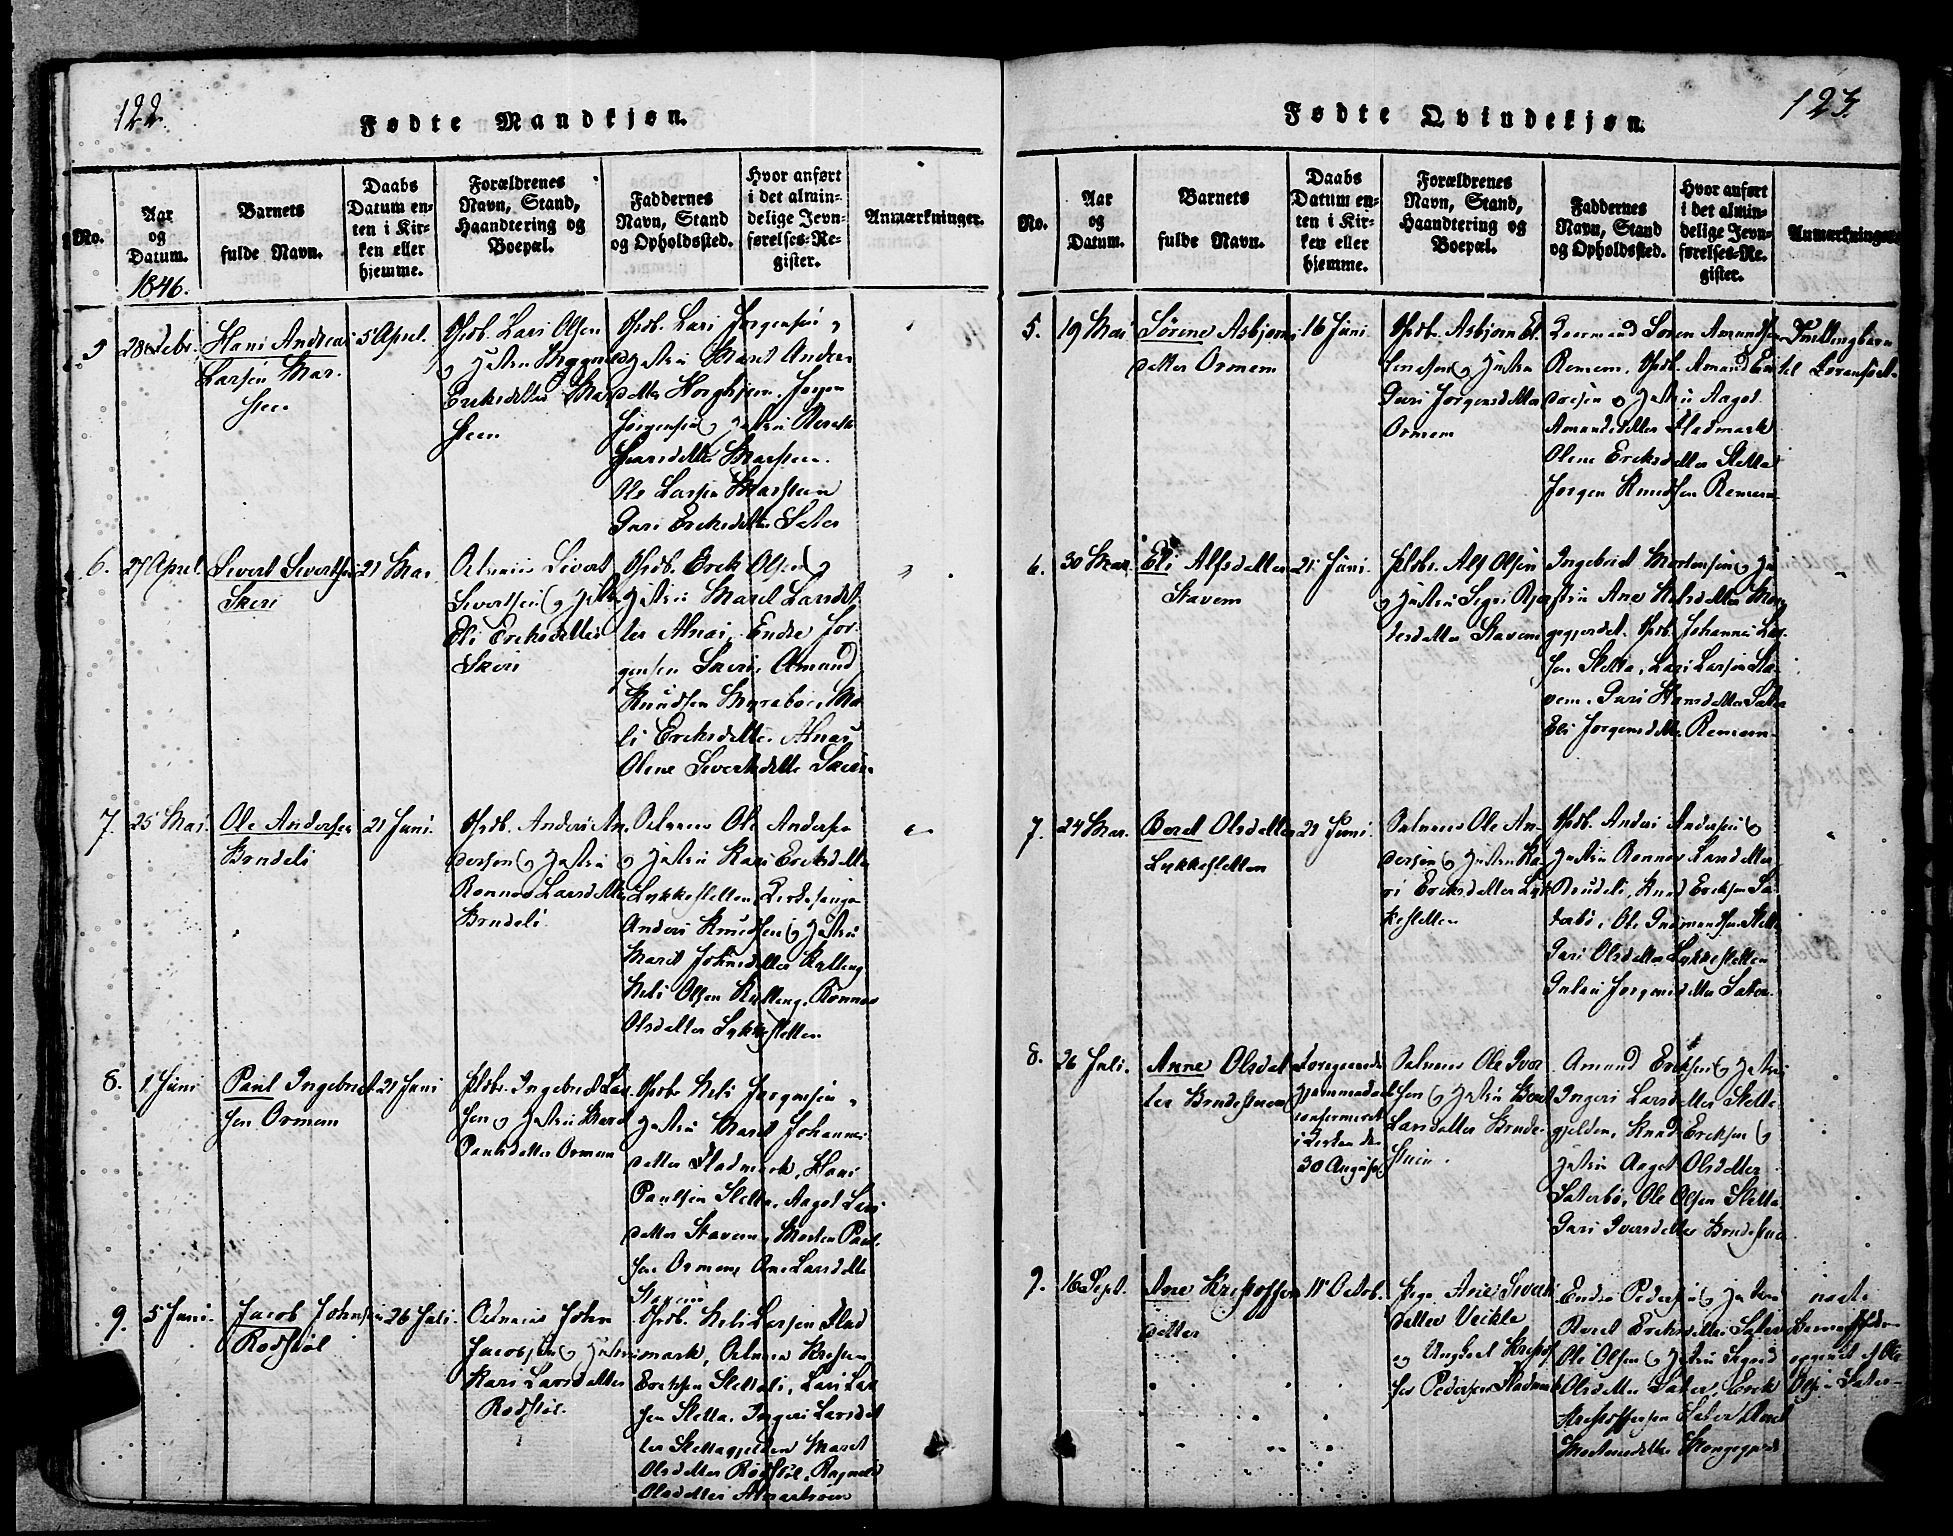 122.
Fødte Mandkjøn.
No.
Aar
og
Datum.
1846.
Barnets
fulde Navn.
Daabs
Datum en-
ten i Kir-
ken eller
hjemme.
Forældrenes
Navn, Stand,
Haandtering og
Boepæl.
Faddernes
Navn, Stand
og Opholdssted.
Hvor anført
i det almin-
delige Jevn-
førelses-Re-
gister.
Anmærkninger.
5
28 Febr.
Hans Andreas
Larsen Mar-
steen
5 April.
Gbdb. Lars Olsen
Ereksdatter Mar
steen
Gbdb. Lars Jørgensen
Hustru Marit Anders
datter Horghjem. Jørgen
Jørgensen og Hustru Bereth
Larsdatter Marsteen.
Ole Larsen Marsteen
Guri Ereksdatter Sæter
6.
27 April
Sivert Sivertsen
Skeri
21 Mai
Sivert
Sivertsen og Hustru
Eli Ereksdatter
Skeri
Gbdb. Erek Olsen og
Hustru Marit Larsdat
ter Alnæs, Endre Jør-
gensen Skeri, Amund
Knudsen Myrebøe, Ma
li Ereksdatter Alnæs
Olene Sivertsdatter Skeri
7.
25 Mai.
Ole Andersen
Brudeli
21 Juni.
Gbdb. Anders An
dersen og Hustru
Ronnou Larsdatter
Brudeli
Ole Anderse
og Hustru Kari Ereksdatter
Lykkesletten
Anders Knudsen og Hustru
Marit Johnsdatter Kylling
Nels Olsen Kylling, Ronnou
Olsdatter Lykkesletten
8.
1 Juni
Paul Ingebrigt
sen Ormem
21 Juni
Ingebrigt Lar
sen og Hustru Marit
Paulsdatter Ormem
Gbdb. Nels Jørgensen
Hustru Marit Johannes
datter Fladmark, Hans
Paulsen Sletta, Aagot Lars
datter Stavem, Morten Paul
sen Ormem, Ane Larsdatter
Stavem
9.
5 Juni.
Jacob Johnsen
Rødstøl
26 Juli.
John
Jacobsen og Hustru
Kari Larsdatter
Rødstøl.
Gbdb. Nels Larsen Flad
mark,
Ereksen Slettali, Lars Lar
sen Sletta, Ingeri Larsdat
ter Slettagjelden Marit
Olsdatter Rødstøl, Ragnild
Olsdatter
123.
Fødte Qvindekjøn.
No.
Aar
og
Datum.
Barnets
fulde Navn.
Daabs
Datum en-
ten i Kir-
ken eller
hjemme.
Forældrenes
Navn, Stand,
Haandtering og
Boepæl.
Faddernes
Navn, Stand
og Opholdssted.
Hvor anført
i det almin-
delige Jevn-
førelses-Re-
gister.
Anmærkninger
5.
19 Mai
Sørene Asbjørns
datter Ormem
16 Juni
Gbdb. Asbjørn El
lingsen og Hustru
Guri Jørgensdatter
Ormem
Søren Amundsen
Remem. Gbdb. Amund En
dresen og Hustru Aagot
Amundsdatter Fladmark
Olene Ereksdatter Sletta
Jørgen Knudsen Remem
6.
30 Mai.
Eli Alfsdatter
Stavem
21 Juni.
Alf Olsen
og Hustru Sigri
datter Stavem
Ingebrigt Mortensen og Hu
stru Ane Nelsdatter Mon
gegjerdet. Gbdb. Johannes Lar
sen Sletta, Lars Larsen Sta
vem. Guri Hansdatter Sletta
Eli Jørgensdatter Remem
7.
24 Mai.
Beret Olsdatter
Lykkesletten
21 Juni.
Ole An
dersen og Hustru Ka
ri Ereksdatter Lyk
kesletten
Gbdb. Anders Andersen og
Hustru Ronnou Larsdatter
Brudeli, Knud Ereksen Sæ
terbø, Ole Gudmundsen Slette
Guri Olsdatter Lykkesletten
Jørgensdatter Sæter.
8.
26 Juli.
Anne Olsdat
ter Brudesteen
hjemmedøbt
confirmeret
i Kirken den
30 August
Ole Iver
sen og Hustru Beret
Larsdatter Brude-
steen.
Amund Ereksen og Hustru
Ingeri Larsdatter Slette
gjelden, Knud Ereksen og
Hustru Aagot Olsdatter
Sæterbø, Ole Olsen Sletta
Guri Iversdatter Brudesteen
9.
16 Sept.
Ane Kristoffers
datter
11 Octob.
Pige Ane Siverts
datter Veikle
og Ungkarl Kristof
fer Pedersen Fladmark
Endre Pedersen og Hustru
Beret Ereksdatter Sæter
Ole Olsen og Hustru Sigrid
Olsdatter Sæter, Erek
Kristoffersen Sæter Beret
Mortensdatter Mongegjerdet
uægte
opgivet af Ole
Olsen Sæter